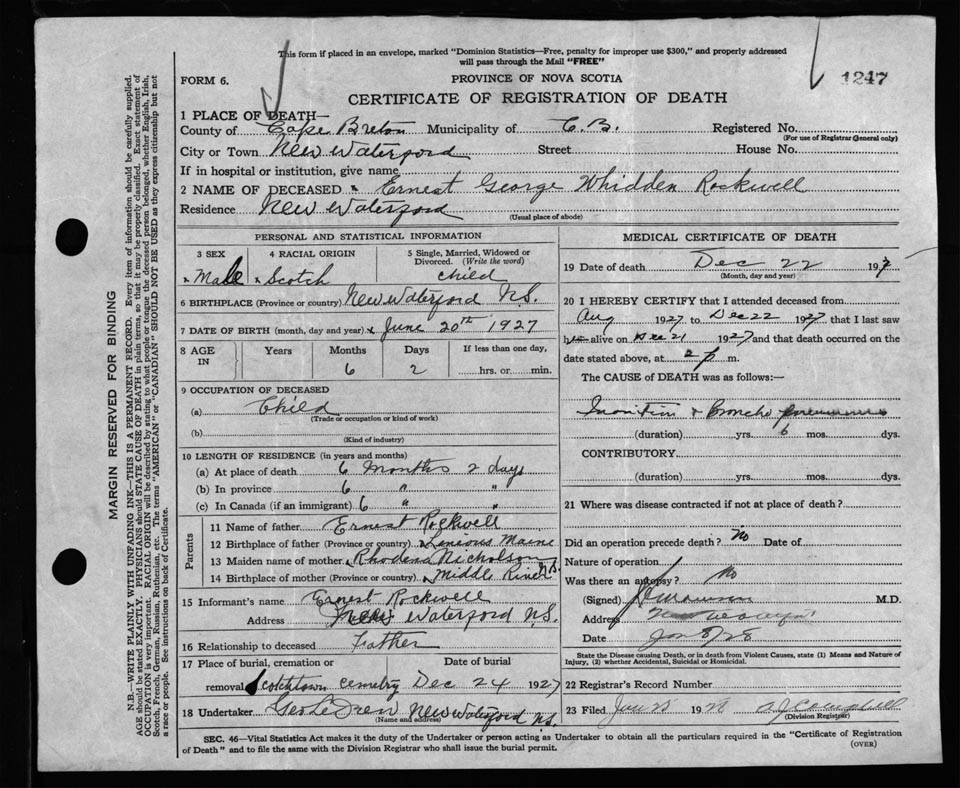 This form if placed in an envelope, marked "Dominion Statistics—Free, penalty for improper use $300," and properly addressed
will pass through the Mail "FREE"
FORM 6.
PROVINCE OF NOVA SCOTIA
1247
CERTIFICATE OF REGISTRATION OF DEATH
1 PLACE OF DEATH—
County of Cape Breton Municipality of C.B. Registered No.
(For use of Registrar General only)
City or Town New Waterford Street House No.
If in hospital or institution, give name
2 NAME OF DECEASED Ernest George Whidden Rockwell
Residence New Waterford
(Usual place of abode)
PERSONAL AND STATISTICAL INFORMATION
3 SEX 4 RACIAL ORIGIN 5 Single, Married, Widowed or
Divorced. (Write the word)
Male Scotch child
6 BIRTHPLACE (Province or country) New Waterford N.S.
7 DATE OF BIRTH (month, day and year) June 20th 1927
8 AGE IN Years Months Days If less than one day,
6 2 hrs. or min.
9 OCCUPATION OF DECEASED
(a) Child
(Trade or occupation or kind of work)
(b)
(Kind of industry)
10 LENGTH OF RESIDENCE (in years and months)
(a) At place of death 6 Months 2 days
(b) In province 6 " "
(c) In Canada (if an immigrant) 6 " "
Parents
11 Name of father Ernest Rockwell
12 Birthplace of father (Province or country) Maine
13 Maiden name of mother Rhodena Nicholson
14 Birthplace of mother (Province or country) Middle River N.S.
15 Informant's name Ernest Rockwell
Address New Waterford N.S.
16 Relationship to deceased Father
17 Place of burial, cremation or Date of burial
removal Scotchtown cemetry Dec 24 1927
18 Undertaker Geo LeDrew New Waterford N.S.
(Name and address)
MEDICAL CERTIFICATE OF DEATH
19 Date of death Dec 22 197
(Month, day and year)
20 I HEREBY CERTIFY that I attended deceased from
Aug 1927 to Dec 22 1927 that I last saw
alive on Dec 21 1927 and that death occurred on
date stated above, at 2 p m.
The CAUSE OF DEATH was as follows:—
Inanition & Broncho pneumonia
(duration) yrs. 6 mos. dys.
CONTRIBUTORY
(duration) yrs. mos. dys.
21 Where was disease contracted if not at place of death?
Did an operation precede death? No Date of
Nature of operation
Was there an autopsy? No
(Signed) M.D.
Address
Date Jan 8/28
State the Disease causing Death, or in death from Violent Causes, state (1) Means and Nature of
Injury, (2) whether Accidental, Suicidal or Homicidal.
22 Registrar's Record Number
23 Filed Jan 19 A J Campbell
(Division Registrar)
SEC. 46—Vital Statistics Act makes it the duty of the Undertaker or person acting as Undertaker to obtain all the particulars required in the "Certificate of Registration
of Death" and to file the same with the Division Registrar who shall issue the burial permit.
(OVER)
MARGIN RESERVED FOR BINDING
N.B.—WRITE PLAINLY WITH UNFADING INK—THIS IS A PERMANENT RECORD. Every item of information should be carefully supplied.
AGE should be stated EXACTLY. PHYSICIANS should STATE CAUSE OF DEATH in plain terms, so that it may be properly classified. Exact statement of
OCCUPATION is very important. RACIAL ORIGIN will be described by stating to what people or tongue the deceased person belonged, whether English, Irish,
Scotch, French, German, Russian, Ruthenian, etc. The terms "AMERICAN" or "CANADIAN" SHOULD NOT BE USED as they express citizenship but not
a race or people. See instructions on back of Certificate.